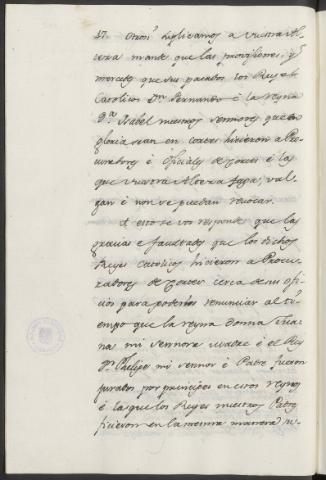 27. Otrosi suplicamos a vuestra Al
teza mande que las provisiones, y
mercedes que sus pasados los Reyes
Catolicos Dn. Fernando è la reyna
Dª Isabel nuestros sennores que en
gloria sean en cortes hicieron a Pro
curadores è oficiales de cortes è las
que vuestra Alteza faga, val
gan è non se puedan revocar.
A esto se vos responde que las
gracias e facultades que los dichos
Reyes Catolicos hicieron a Procu
radores de Cortes cerca de sus ofi
cios para poderlos renunciar al ti
empo que la reyna donna Jua
na mi sennora madre è el Rey
Dn. Phelipe mi sennor è Padre fueron
jurados por principes en estos reynos
è la que los Reyes nuestros Padres
ficieron en la mesma manera